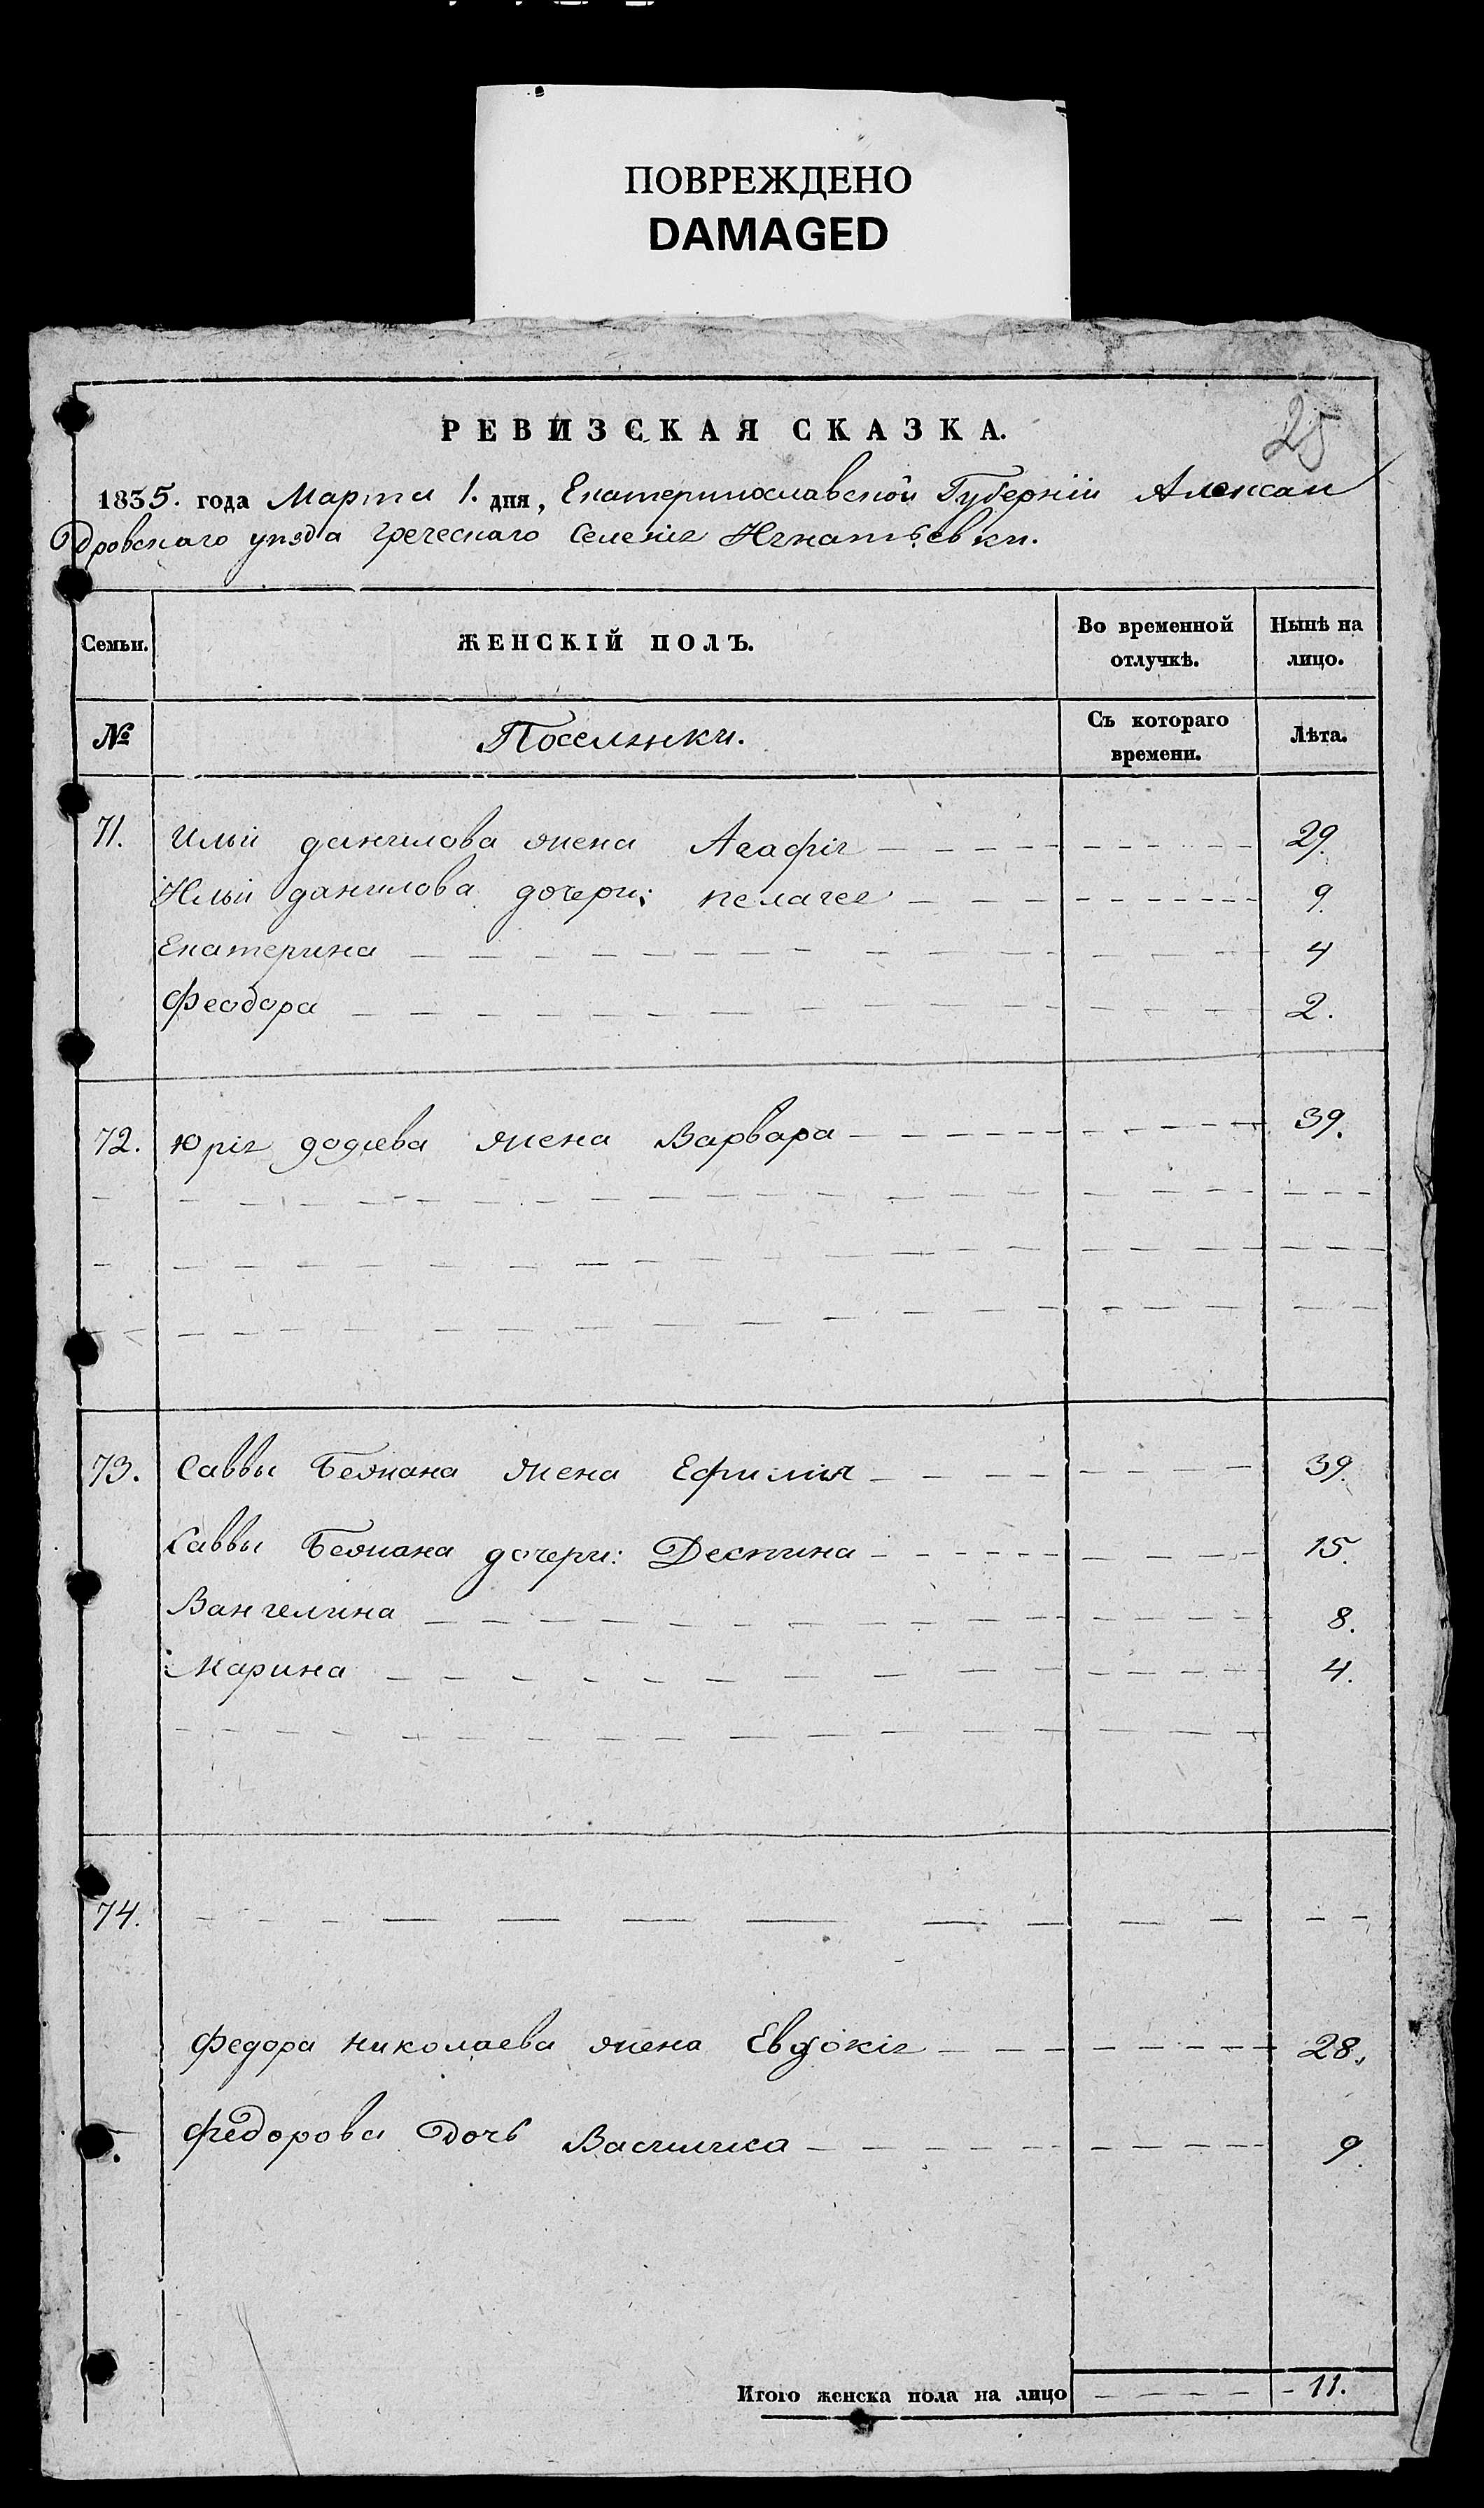 ПОВРЕЖДЕНО
DAMAGED
25
РЕВИЗСКАЯ СКАЗКА.
1835. года Марта 1. дня, Екатеринославской Губерніи Алексан
дровскаго уѣзда греческаго Селенія Игнатьевки.
Семьи. ЖЕНСКІЙ ПОЛЪ. Во временной отлучкѣ. Нынѣ на лицо.
№ Поселянки. Съ котораго времени. Лѣта.
71. Ильи данилова жена Агафія 29.
Ильи данилова дочери: пелагея 9.
Екатерина 4
Феодора 2.
72. Юрія жена Варвара 39.
73. Саввы Бежана жена Ефимія 39.
Саввы Бежана дочери: Деспина 15.
Вангелина 8.
Марина 4.
74.
Федора николаева жена Евдокія 28.
Федорова Дочь Василика 9.
Итого женска пола на лицо 11.